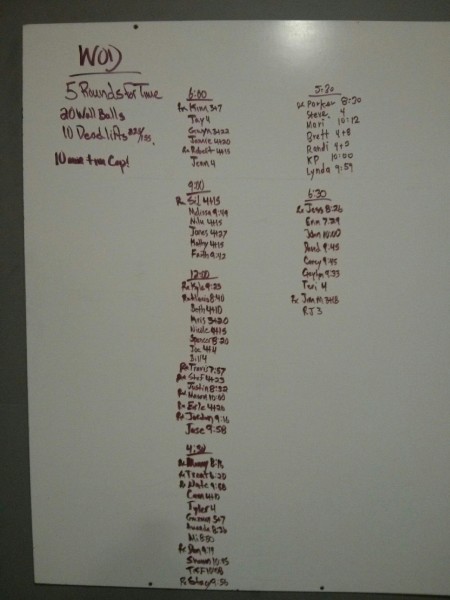 WOD
5 Rounds for Time
20 Wall Balls
10 Deadlifts 225/155
10 min time Cap!
6:00
Rx 3+7
Tay 4
3+22
4+20
Rx Robert 4+15
Jenn 4
9:00
Rx Sil 4+15
Melissa 9:59
4+15
James 4+27
Mathy 4+15
Faith 9:42
12:00
Rx Kyle 9:23
Rx 8:40
Beth 4+10
3+20
Nicole 4+15
Spencer 8:20
Joe 4+4
Bill 4
Rx Travis 7:57
Rx Stef 4+23
Justin 8:32
Rx 10:00
Rx Eric 4+26
Rx Jordan 9:16
Jose 9:58
4:30
Rx Danny
Rx Trent 6:20
Rx Wade 9:58
Cam 4+10
Tyler 4
5+7
Amanda 8:36
Ali 8:50
Rx Dan 9:19
Shannon
Rx 9:56
5:30
Rx Parker 8:20
Steve 4
Mari 10:12
Brett 4+8
Randi 4+2
KP 10:00
Lynda 9:59
6:30
Rx Jess 8:26
Erin 7:29
John 10:00
David 9:45
Corey 9:45
Gaylyn 9:33
Teri 4
Rx Jim M 3+18
RJ 3